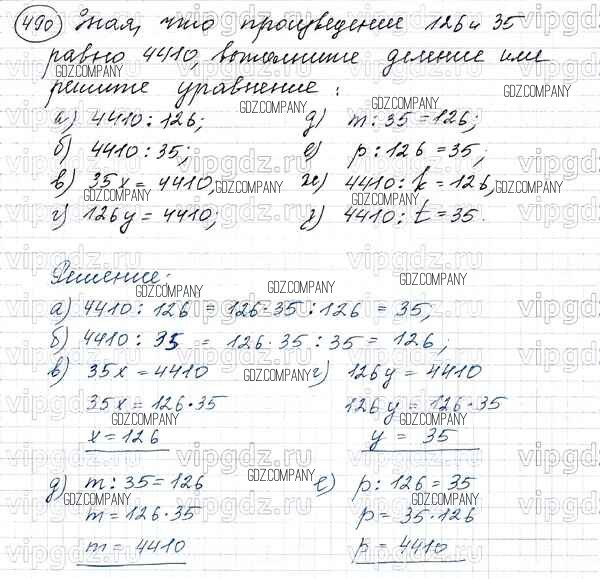 490 Зная, что произведение 126 и 35
равно 4410, выполните деление или
решите уравнение:
а) 4410 : 126; д) m : 35 = 126;
б) 4410 : 35; е) p : 126 = 35;
в) 35x = 4410, ж) 4410 : k = 126,
г) 126y = 4410; з) 4410 : t = 35.
Решение:
а) 4410 : 126 = 126·35 : 126 = 35;
б) 4410 : 35 = 126·35 : 35 = 126;
в) 35x = 4410 г) 126y = 4410
35x = 126·35 126y = 126·35
x = 126 y = 35
д) m : 35 = 126 е) p : 126 = 35
m = 126·35 p = 35·126
m = 4410 p = 4410